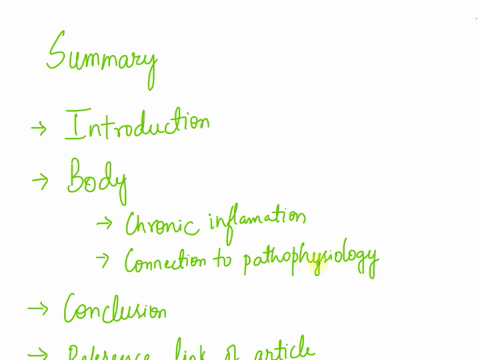 Summary
→ Introduction
→ Body
→ Chronic inflamation
→ Connection to pathophysiology
→ Conclusion
→ Reference link of article